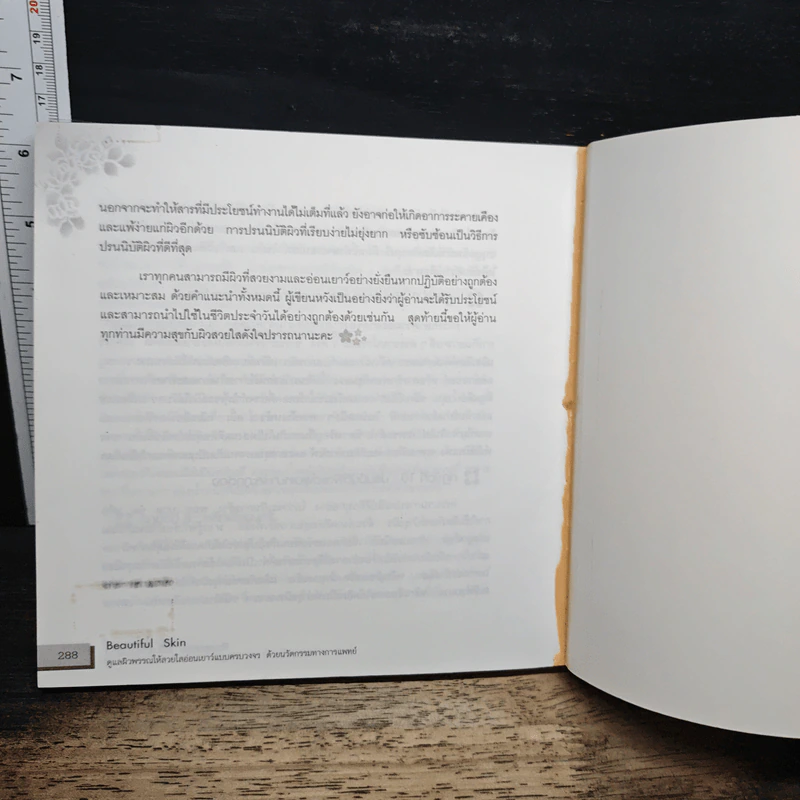 20
19
18
17
7
6
5
นอกจากจะทำให้สารที่มีประโยชน์ทำงานได้ไม่เต็มที่แล้ว ยังอาจก่อให้เกิดอาการระคายเคือง
และแพ้ง่ายแก่ผิวอีกด้วย การปรนนิบัติผิวที่เรียบง่ายไม่ยุ่งยาก หรือซับซ้อนเป็นวิธีการ
ปรนนิบัติผิวที่ดีที่สุด
เราทุกคนสามารถมีผิวที่สวยงามและอ่อนเยาว์อย่างยั่งยืนหากปฏิบัติอย่างถูกต้อง
และเหมาะสม ด้วยคำแนะนำทั้งหมดนี้ ผู้เขียนหวังเป็นอย่างยิ่งว่าผู้อ่านจะได้รับประโยชน์
และสามารถนำไปใช้ในชีวิตประจำวันได้อย่างถูกต้องด้วยเช่นกัน สุดท้ายนี้ขอให้ผู้อ่าน
ทุกท่านมีความสุขกับผิวสวยใสดังใจปรารถนานะคะ
288
Beautiful Skin
ดูแลผิวพรรณให้สวยใสอ่อนเยาว์แบบครบวงจร ด้วยนวัตกรรมทางการแพทย์